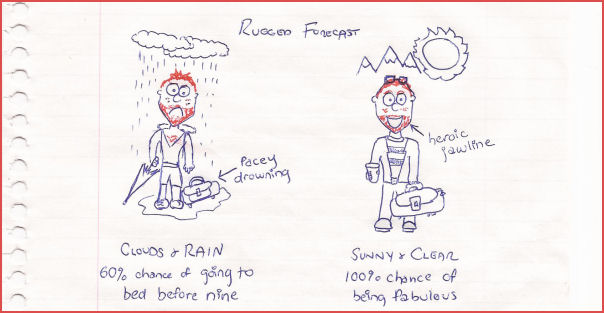 RUGGED FORECAST
Pacey
drowning
heroic
jawline
CLOUDS & RAIN
60% chance of going to
bed before nine
SUNNY & CLEAR
100% chance of
being fabulous